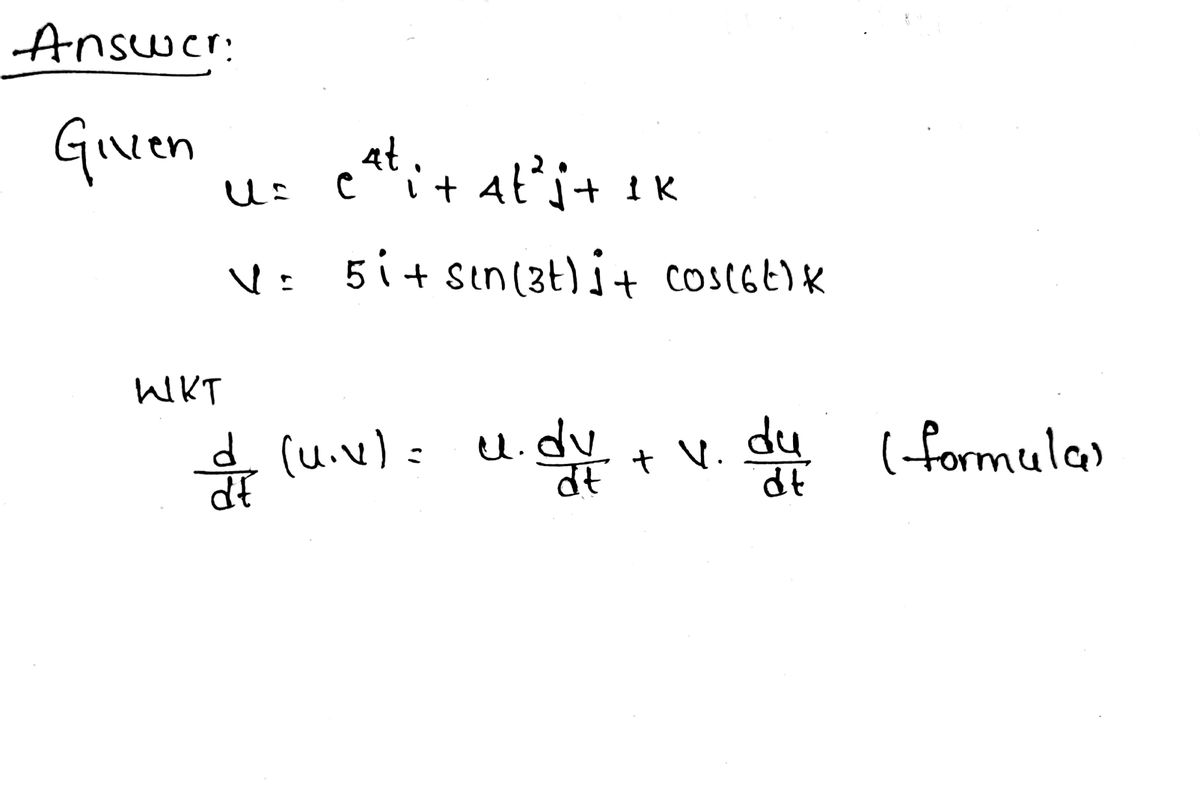 Answer:
Given
u = e^4t i + 4t² j + 1 k
v = 5 i + sin(3t) j + cos(6t) k
WKT
d/dt (u.v) = u. dv/dt + v. du/dt (formula)